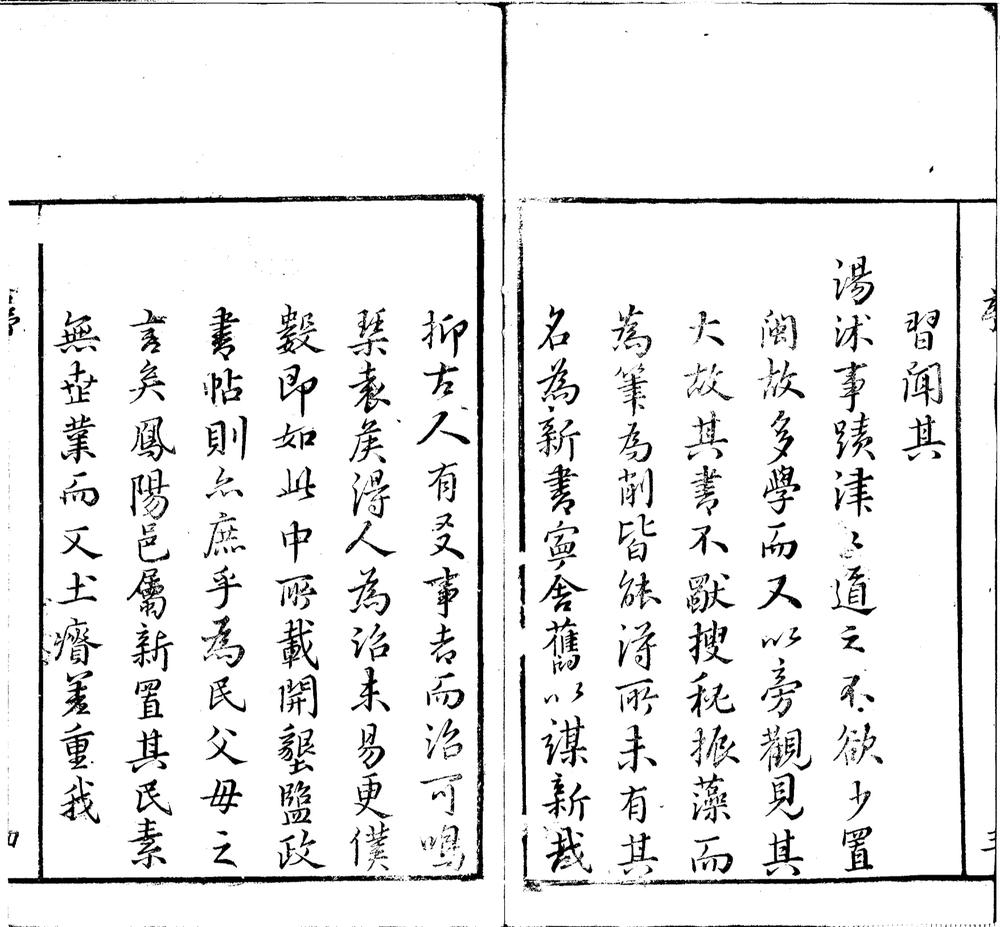 習聞其
湯沭事蹟津〻道之不欲少置
閩故多學而又以旁觀見其
大故其書不猒搜秘振藻而
為筆為削皆能得所未有其
名為新書寧舍舊以謀新哉
抑古人有又事者而治可鳴
琴袁矦得人為治未易更僕
數即如此中所載開墾監政
書帖則亦庶乎為民父母之
言矣鳳陽邑屬新置其民素
無世業而又土瘠差重我